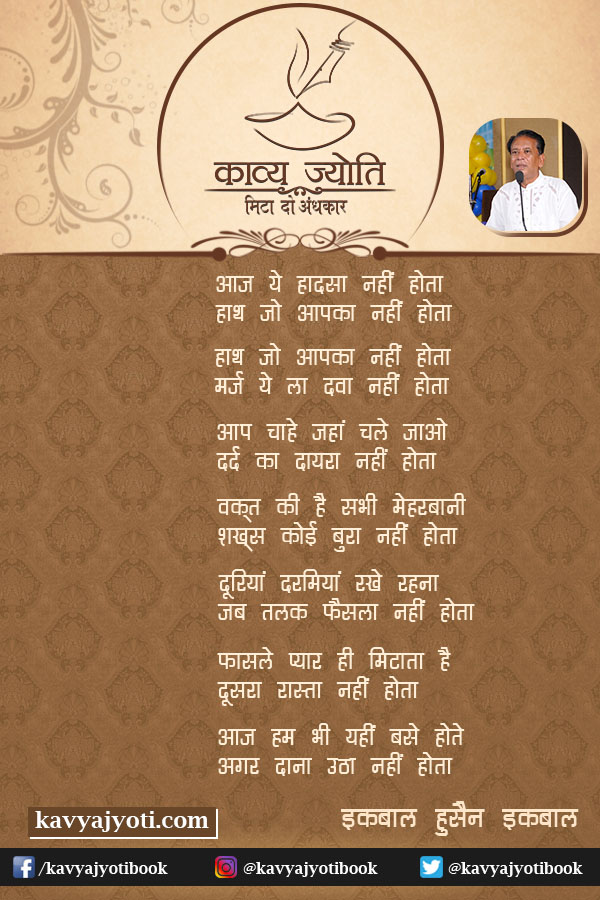 काव्य ज्योति
मिटा दो अंधकार
आज ये हादसा नहीं होता
हाथ जो आपका नहीं होता
हाथ जो आपका नहीं होता
मर्ज ये ला दवा नहीं होता
आप चाहे जहां चले जाओ
दर्द का दायरा नहीं होता
वक्त की है सभी मेहरबानी
शख्स कोई बुरा नहीं होता
दूरियां दरमियां रखे रहना
जब तलक फैसला नहीं होता
फासले प्यार ही मिटाता है
दूसरा रास्ता नहीं होता
आज हम भी यहीं बसे होते
अगर दाना उठा नहीं होता
इकबाल हुसैन इकबाल
kavyajyoti.com
/kavyajyotibook @kavyajyotibook @kavyajyotibook